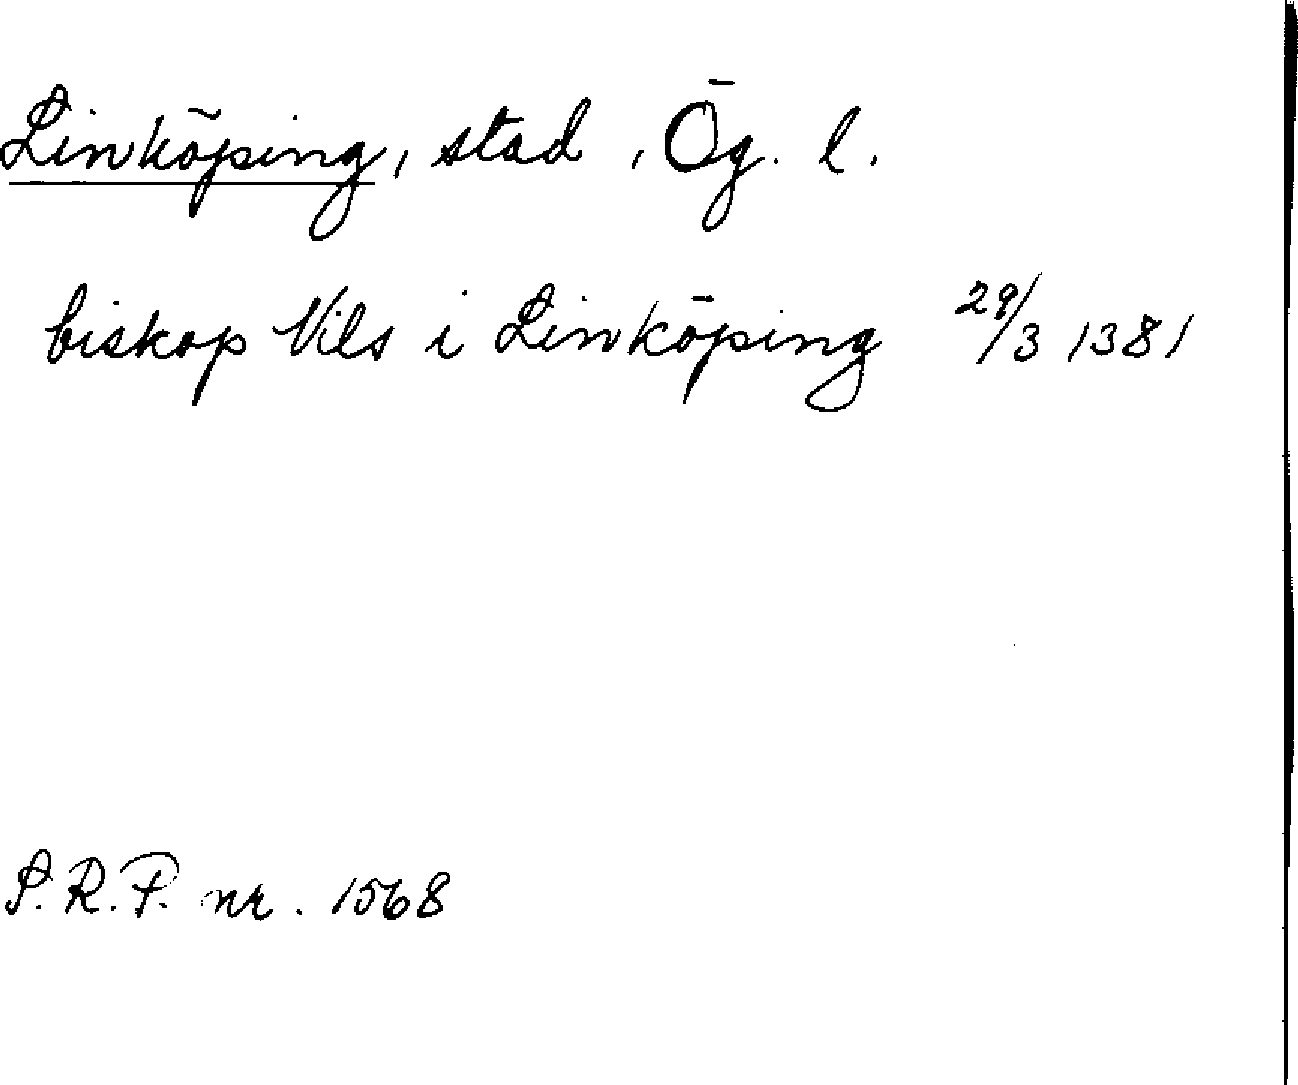 Linköping, stad, Ög. l.
biskop Nils i Linköping 29/3 1381
S.R.P. nr. 1568